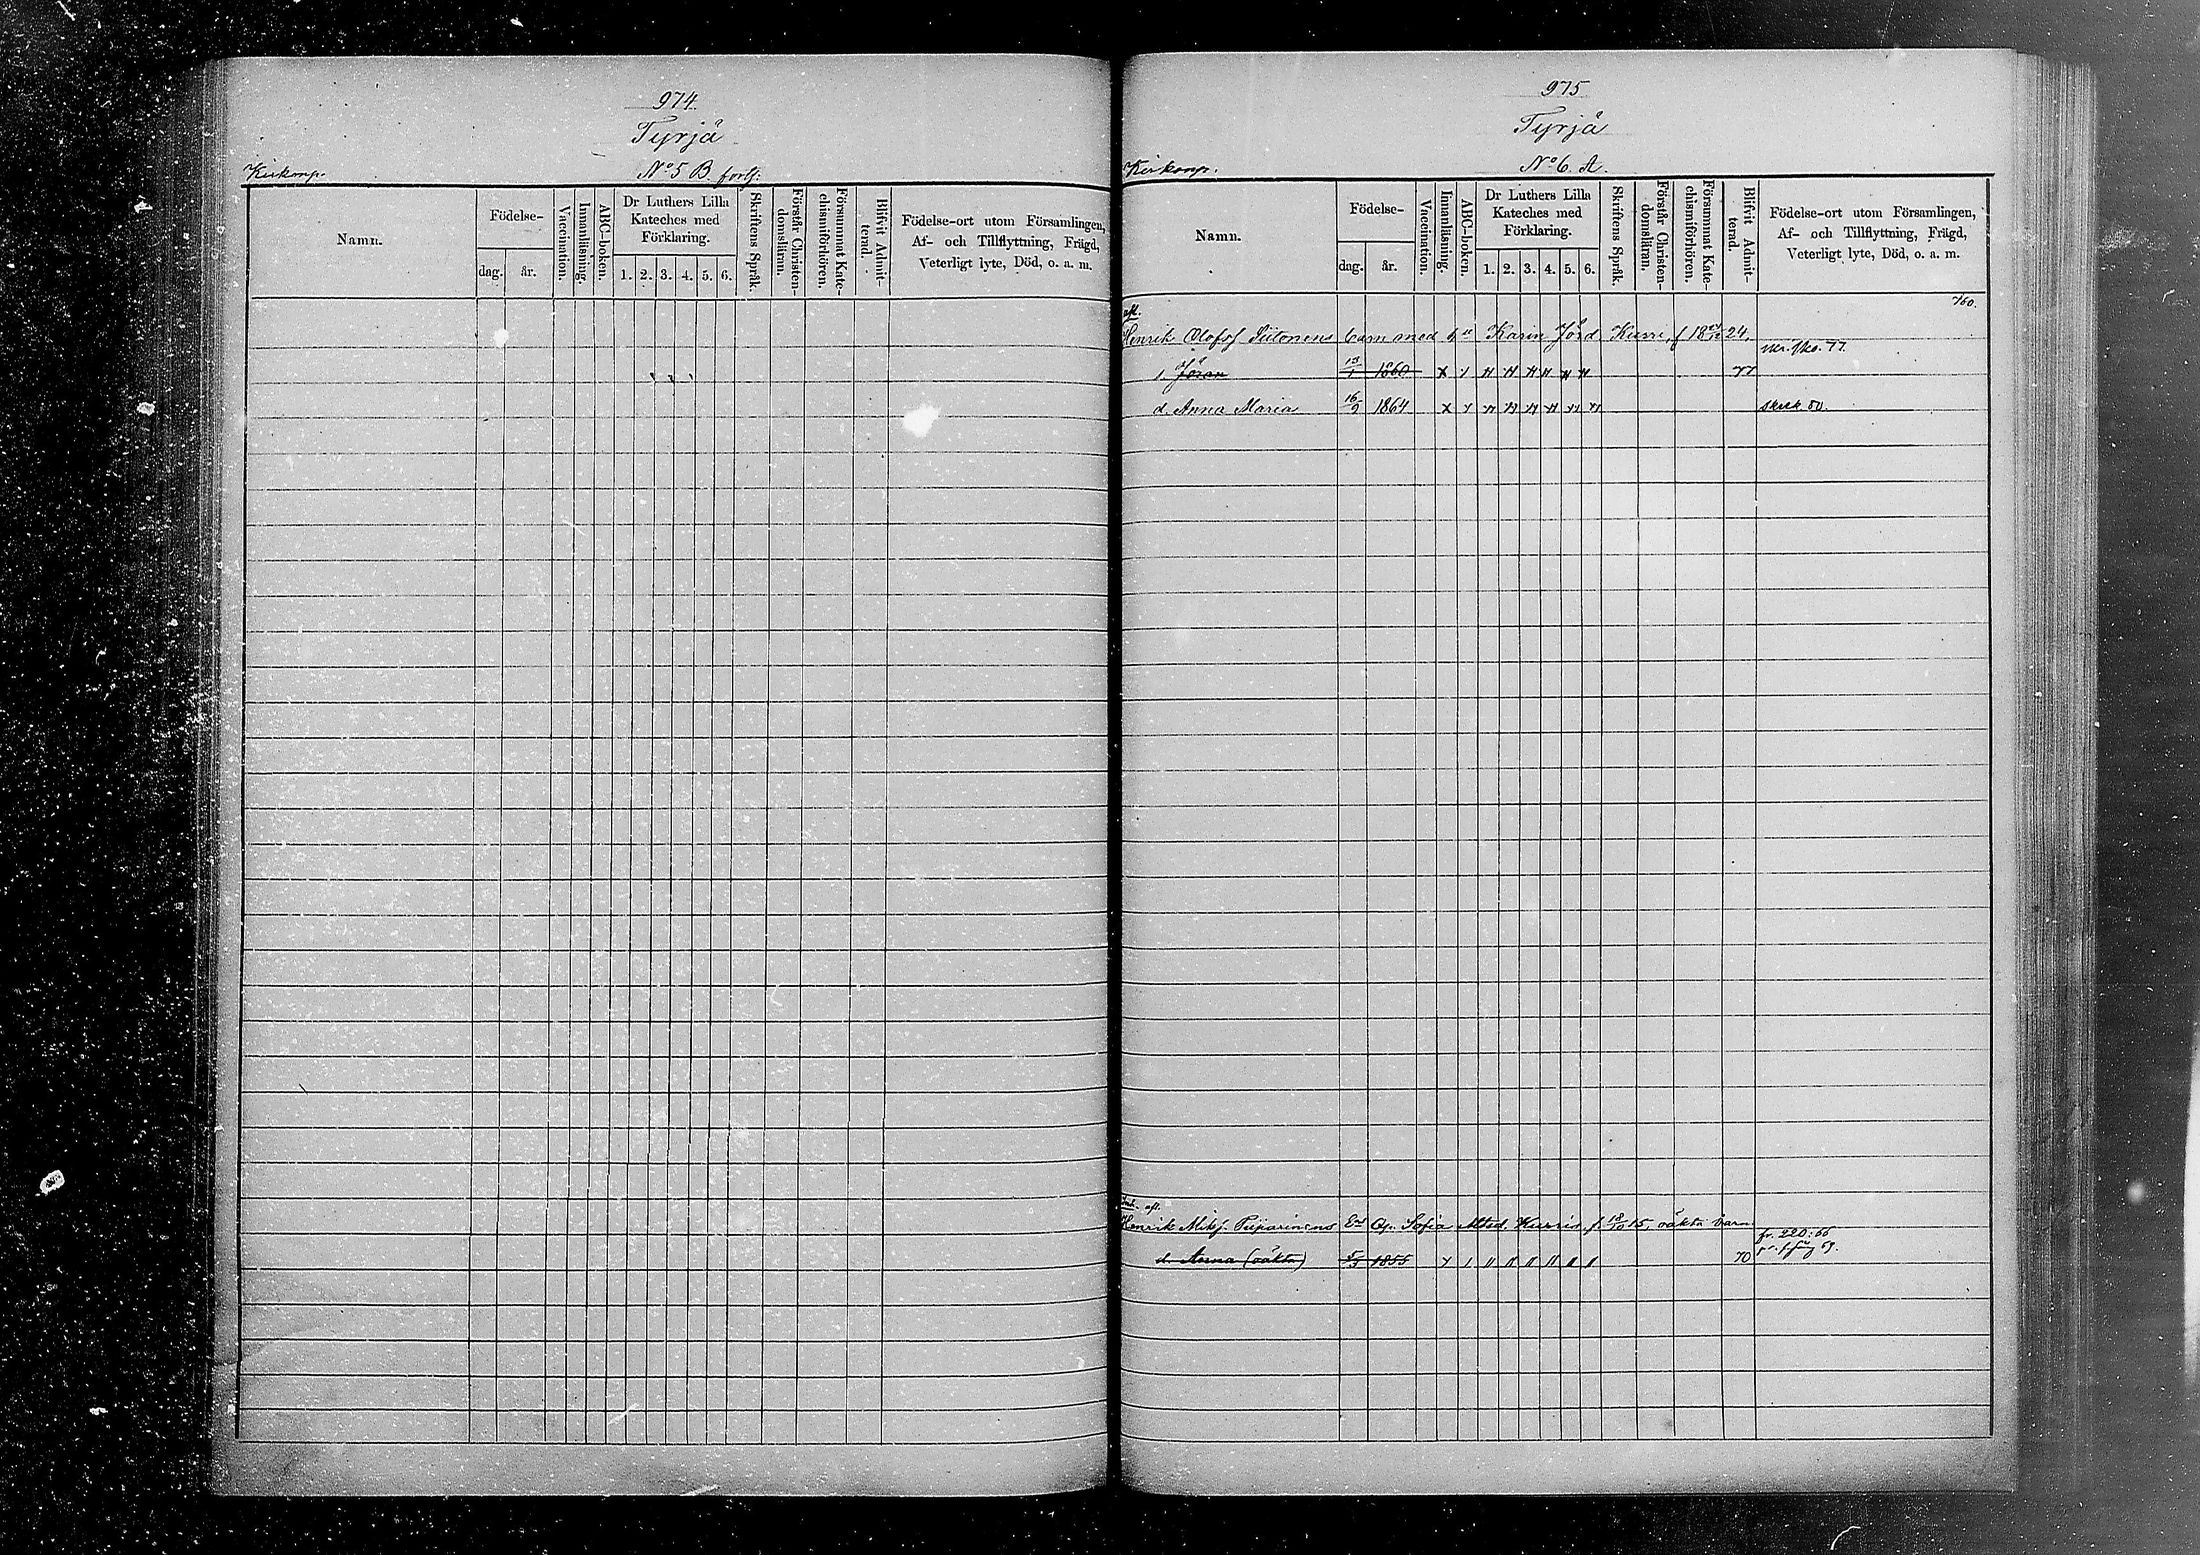 974.
Tyrjä
Kirkonp. No 5 B. forts:
Namn. Födelse- dag. år. Vaccination. Innanläsning. ABC-boken. Dr Luthers Lilla Kateches med Förklaring. 1. 2. 3. 4. 5. 6. Skriftens Språk. Förstår Christendomsläran. Försummat Katechismiförhören. Blifvit Admitterad. Födelse-ort utom Församlingen, Af- och Tillflyttning, Frägd, Veterligt lyte, Död, o. a. m.
975
Tyrjä
Kirkonp. No 6. A.
Namn. Födelse- dag. år. Vaccination. Innanläsning. ABC-boken. Dr Luthers Lilla Kateches med Förklaring. 1. 2. 3. 4. 5. 6. Skriftens Språk. Förstår Christendomsläran. Försummat Katechismiförhören. Blifvit Admitterad. Födelse-ort utom Församlingen, Af- och Tillflyttning, Frägd, Veterligt lyte, Död, o. a. m.
760.
afl.
Henrik Olofsf Siitonens barn med Karin Jörd. Kurri, f 18 24.
s. Jöran 1860 77
d. Anna Maria 16/9 1864 skrsk. 80.
Inh. afl.
Henrik Mikf. Piiparinens Sofia Matsd. Kurris f. 18/10 15, oäkta barn
fr. 220: 66
d. Anna (oäkta) 1855 70